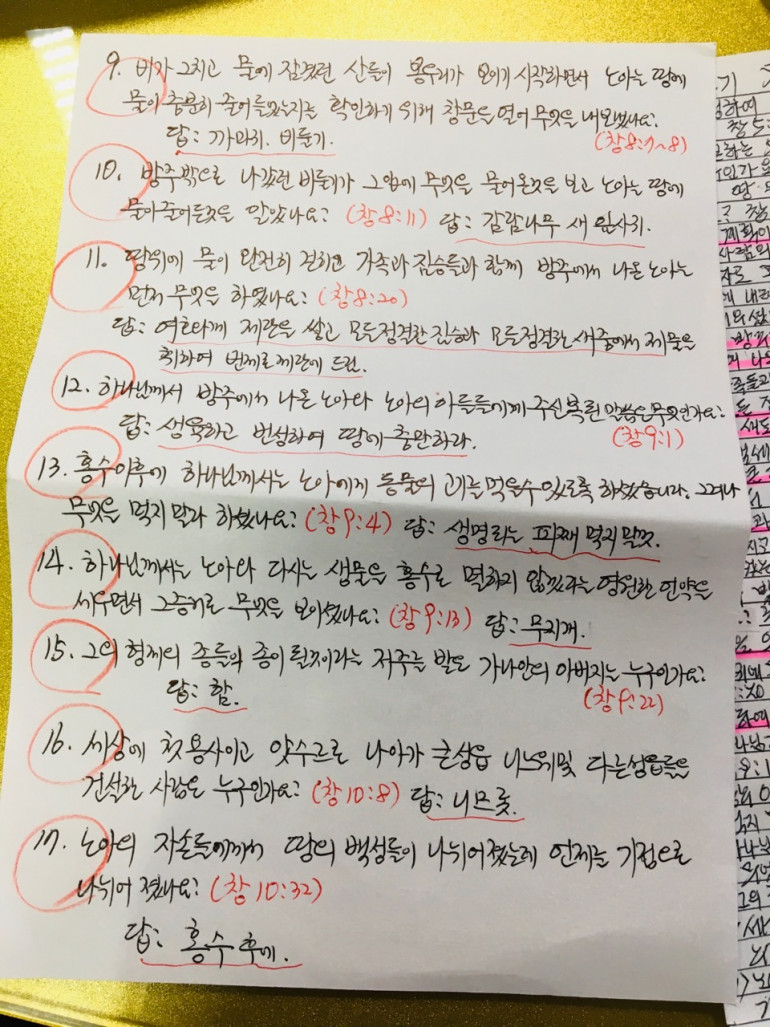 9. 비가 그치고 물에 잠겼던 산들이 봉우리가 보이기 시작하면서 노아는 땅에
물이 충분히 줄어들었는지를 확인하기 위해 창문을 열어 무엇을 내보냈나요?
답: 까마귀. 비둘기. (창8:7~8)
10. 방주밖으로 나갔던 비둘기가 그입에 무엇을 물어온것을 보고 노아는 땅에
물이줄어든것을 알았나요? (창8:11) 답: 감람나무 새 잎사귀.
11. 땅위에 물이 완전히 걷히고 가족과 짐승들과 함께 방주에서 나온 노아는
먼저 무엇을 하였나요? (창8:20)
답: 여호와께 제단을 쌓고 모든정결한 짐승과 모든정결한 새중에서 제물을
취하여 번제로 제단에 드린.
12. 하나님께서 방주에서 나온 노아와 노아의 아들들에게 주신복된 말씀은무엇인가요?
답: 생육하고 번성하여 땅에 충만하라. (창9:1)
13. 홍수이후에 하나님께서는 노아에게 동물의 고기를 먹을수있도록 하셨습니다. 그러나
무엇을 먹지말라 하셨나요? (창9:4) 답: 생명되는 피째 먹지말것.
14. 하나님께서는 노아와 다시는 생물을 홍수로 멸하지 않겠다는 영원한 언약을
세우면서 그증거로 무엇을 보이셨나요? (창9:13) 답: 무지개.
15. 그의 형제의 종들의 종이 될것이라는 저주를 받은 가나안의 아버지는 누구인가요?
답: 함. (창9:22)
16. 세상에 첫용사이고 앗수르로 나아가 큰성읍 니느웨및 다른성읍들을
건설한 사람은 누구인가요? (창10:8) 답: 니므롯.
17. 노아의 자손들에게서 땅의 백성들이 나뉘어졌는데 언제를 기점으로
나뉘어 졌나요? (창10:32)
답: 홍수 후에.